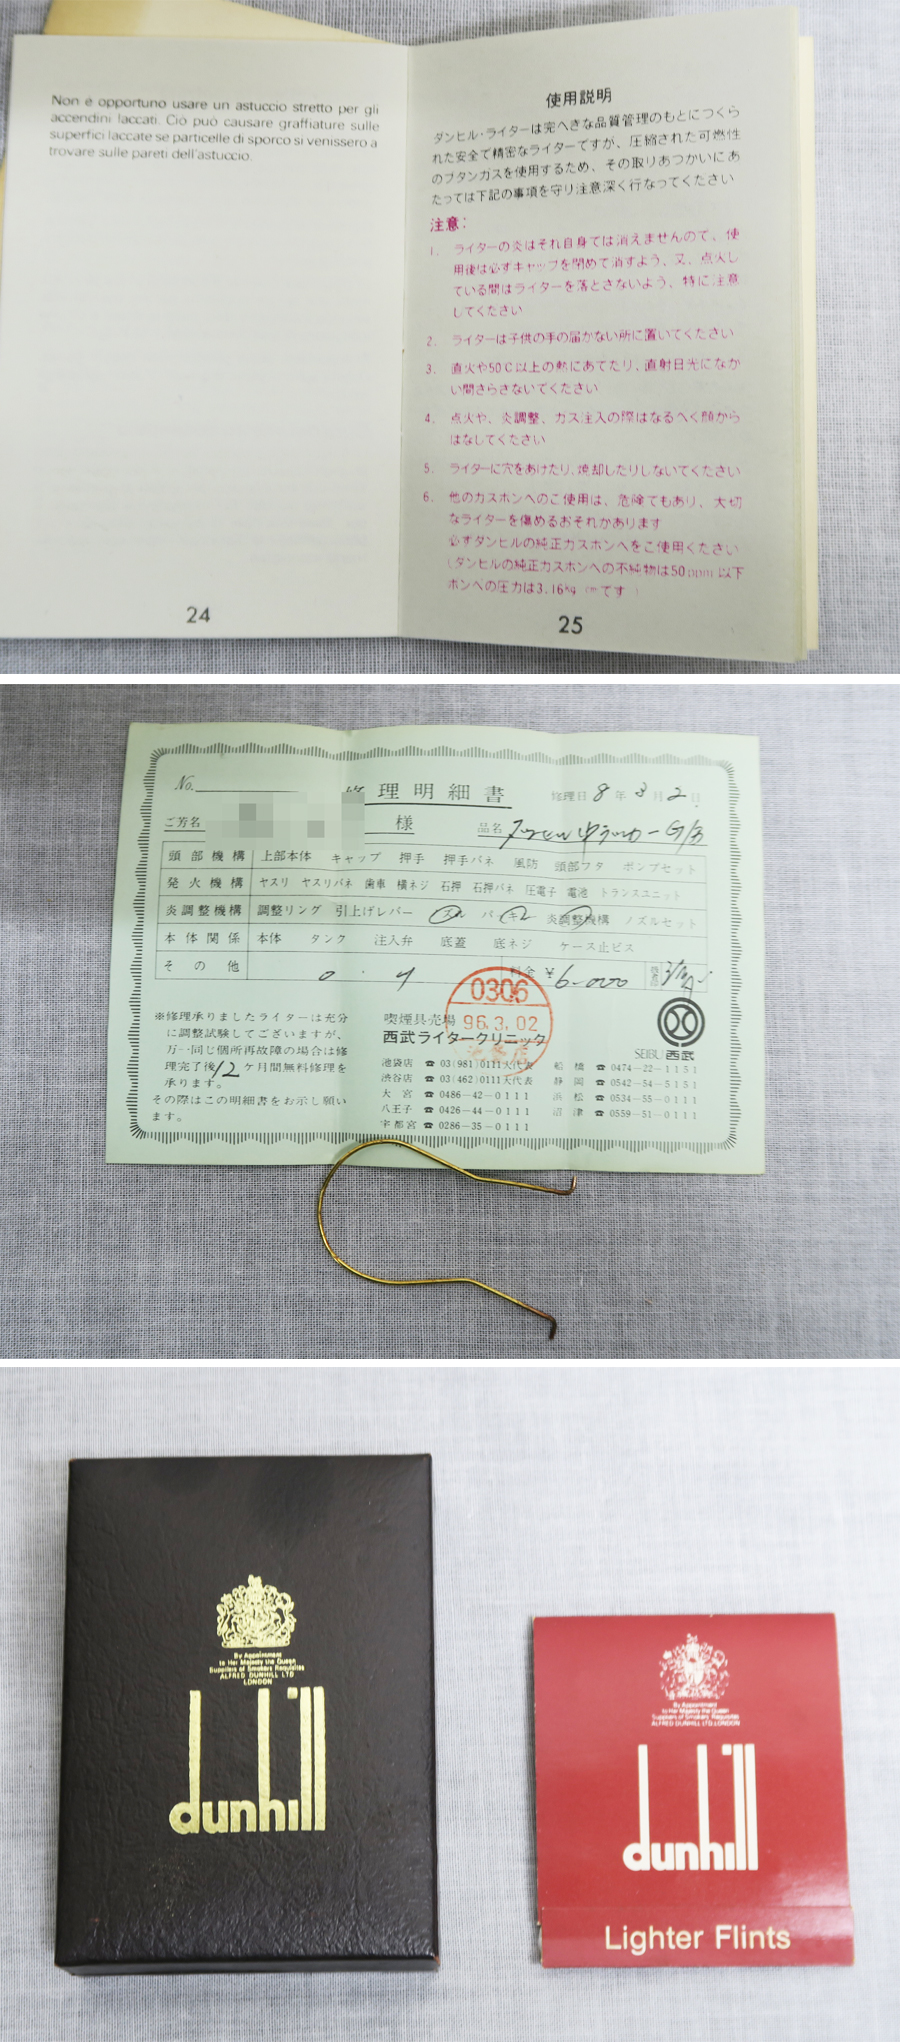 Non è opportuno usare un astuccio stretto per gli
accendini laccati. Ciò può causare graffiature sulle
superfici laccate se particelle di sporco si venissero a
trovare sulle pareti dell'astuccio.
24
使用説明
ダンヒル・ライターは完ぺきな品質管理のもとにつくら
れた安全で精密なライターですが、圧縮された可燃性
のブタンガスを使用するため、その取りあつかいにあ
たっては下記の事項を守り注意深く行なってください
注意:
1. ライターの炎はそれ自身では消えませんので、使
用後は必ずキャップを閉めて消すよう、又、点火し
ている間はライターを落とさないよう、特に注意
してください
2. ライターは子供の手の届かない所に置いてください
3. 直火や50℃以上の熱にあてたり、直射日光になが
い間さらさないでください
4. 点火や、炎調整、ガス注入の際はなるべく顔から
はなしてください
5. ライターに穴をあけたり、焼却したりしないでください
6. 他のガスボンベのご使用は、危険でもあり、大切
なライターを傷めるおそれがあります
必ずダンヒルの純正ガスボンベをご使用ください
(ダンヒルの純正ガスボンベの不純物は50ppm以下
ボンベの圧力は3.16kg
です)
25
No.
修理明細書
修理日 8年3月2日
ご芳名
様
品名
頭部機構 上部本体 キャップ 押手 押手バネ 風防 頭部フタ ポンプセット
発火機構 ヤスリ ヤスリバネ 歯車 横ネジ 石押 石押バネ 圧電子 電池 トランスユニット
炎調整機構 調整リング 引上げレバー 炎調整機構 ノズルセット
本体関係 本体 タンク 注入弁 底蓋 底ネジ ケース止ビス
その他
料金 ¥6-000
0306
96.3.02
※修理承りましたライターは充分
に調整試験してございますが、
万一同じ個所再故障の場合は修
理完了後12ケ月間無料修理を
承ります。
その際はこの明細書をお示し願い
ます。
喫煙具売場
西武ライタークリニック
SEIBU 西武
池袋店 ☎ 03(981)0111大代表
渋谷店 ☎ 03(462)0111大代表
大宮 ☎ 0486-42-0111
八王子 ☎ 0426-44-0111
宇都宮 ☎ 0286-35-0111
船橋 ☎ 0474-22-1151
静岡 ☎ 0542-54-5151
浜松 ☎ 0534-55-0111
沼津 ☎ 0559-51-0111
By Appointment
to Her Majesty the Queen
Suppliers of Smokers Requisites
ALFRED DUNHILL LTD
LONDON
dunhill
By Appointment
to Her Majesty the Queen
Suppliers of Smokers Requisites
ALFRED DUNHILL LTD. LONDON
dunhill
Lighter Flints